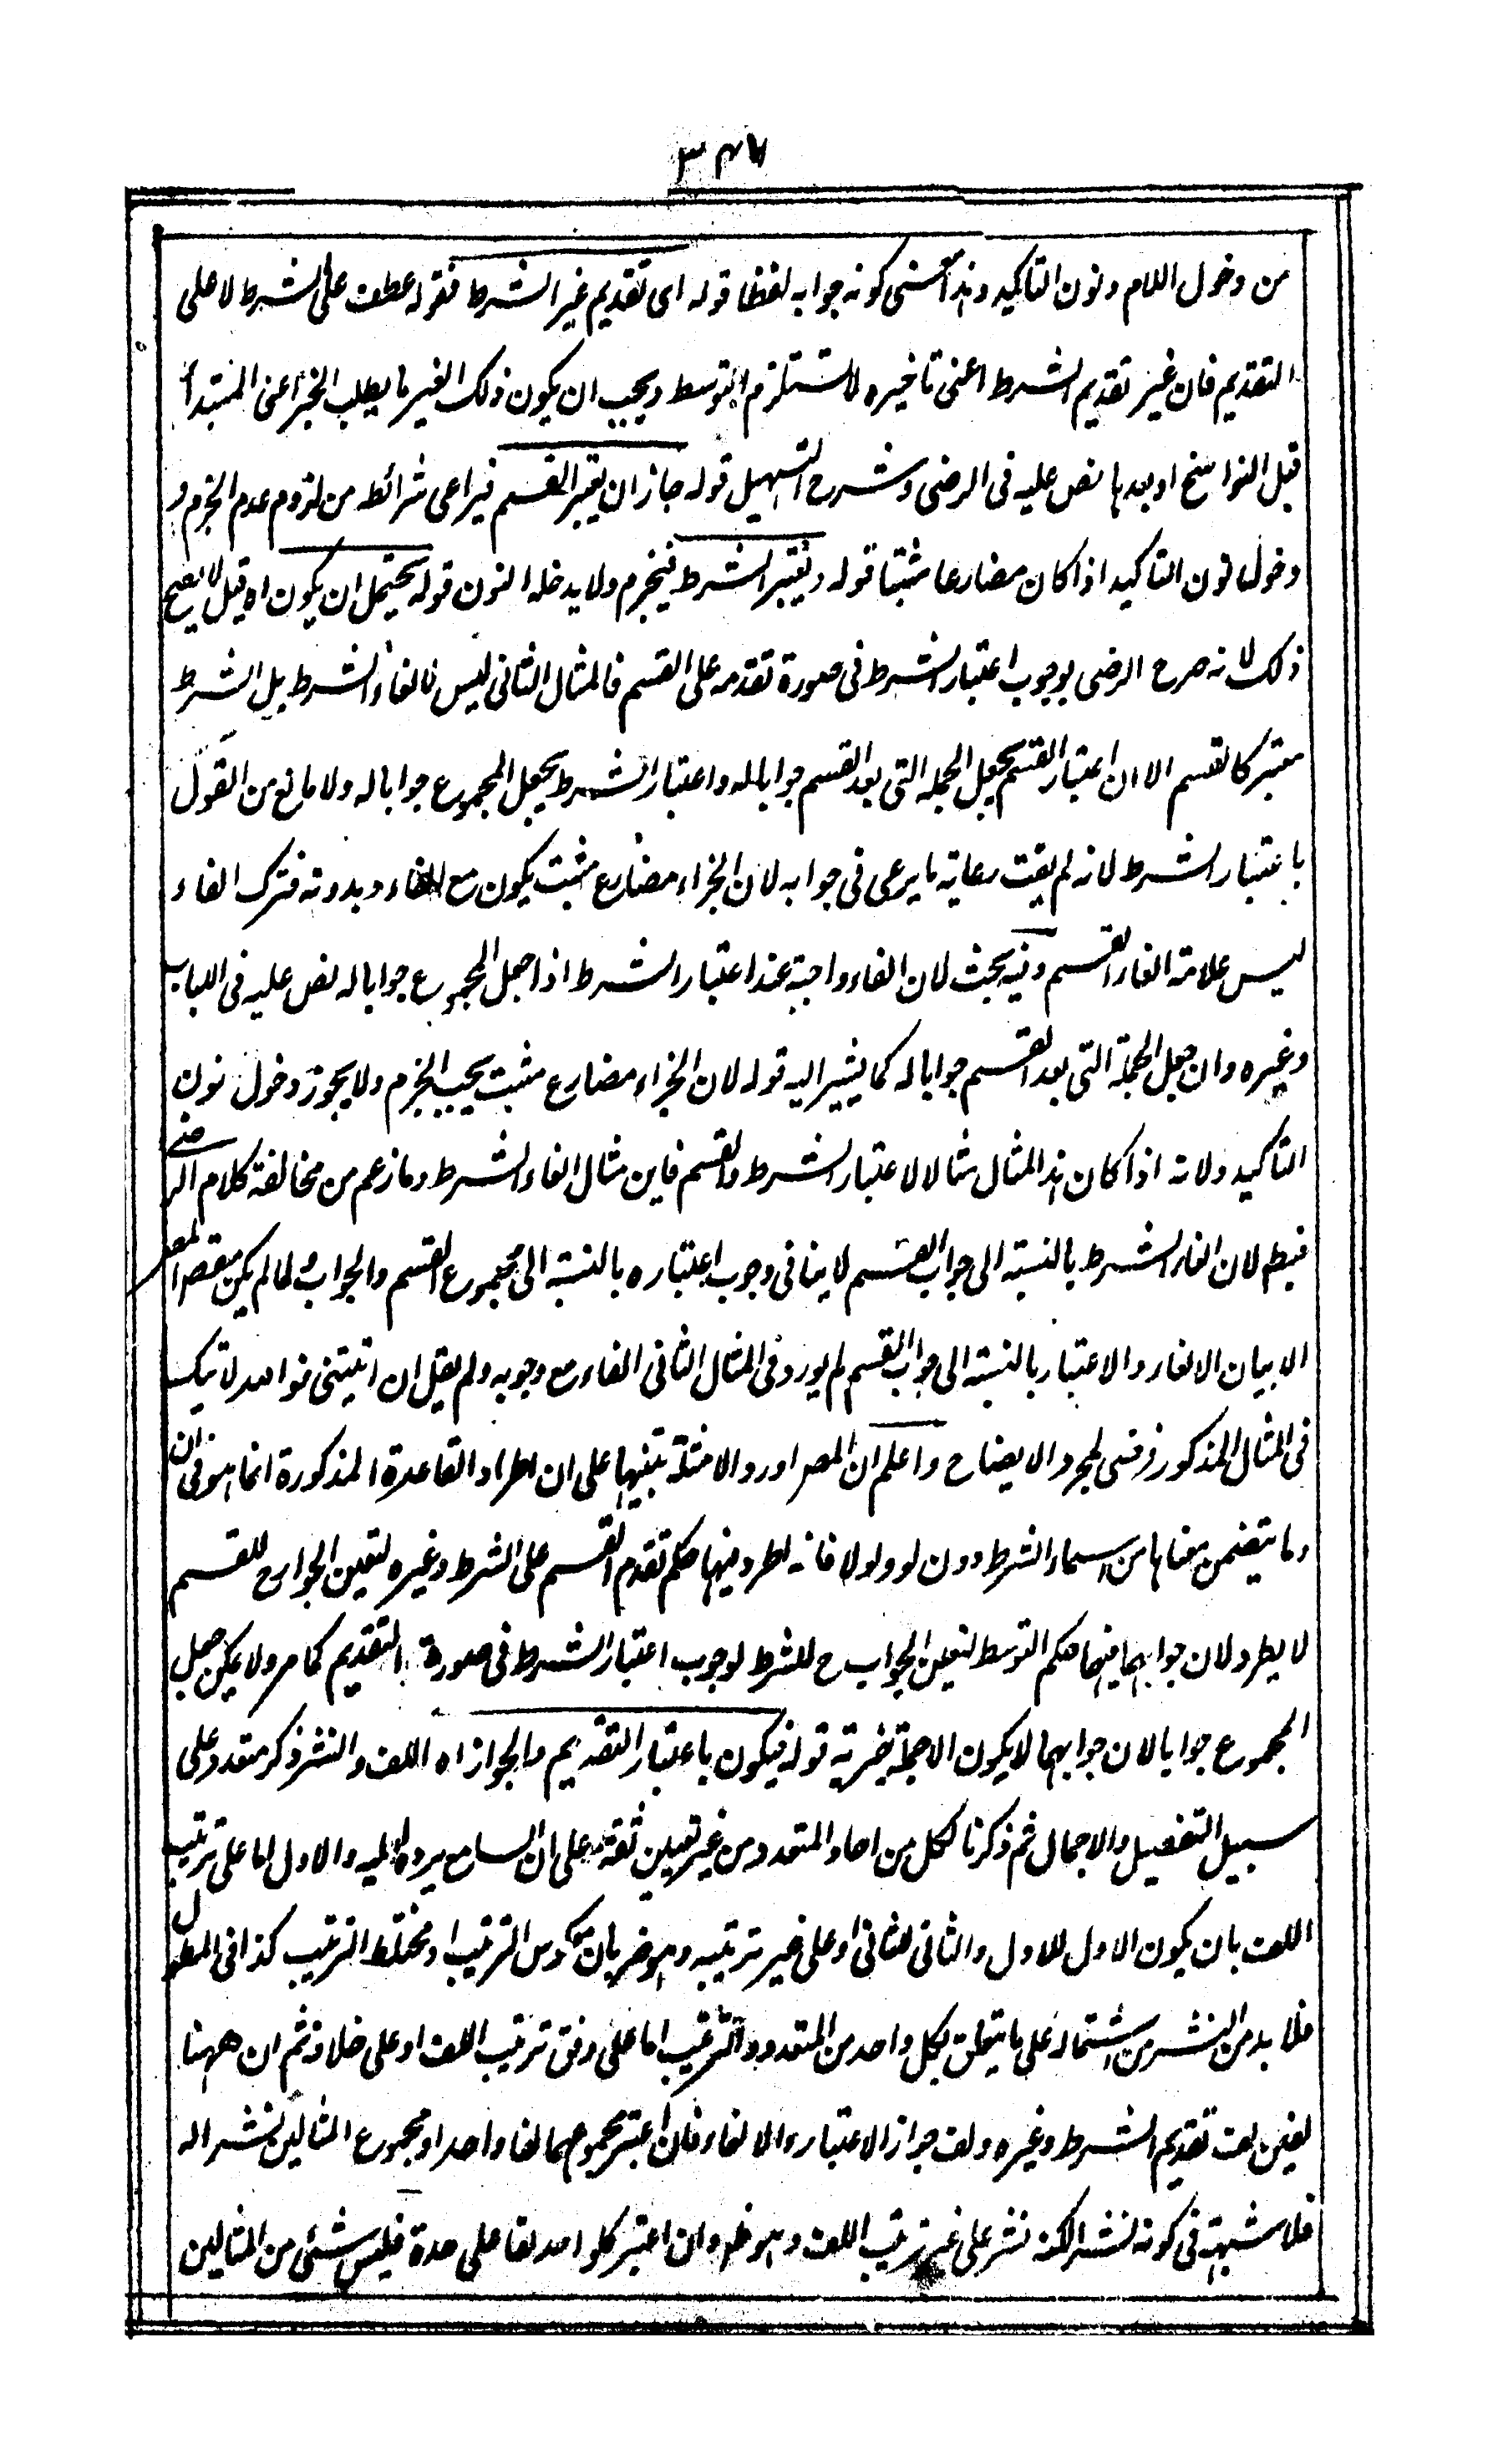 ٣٤٧
من دخول اللام ونون التاكيد وهذا معنى كونه جوابه لفظا قوله اى تقديم غير الشرط فقوله عطف على الشرط لا على
التقديم فان غير تقديم الشرط اعنى تاخيره لا يستلزم التوسط ويجب ان يكون ذلك الغير ما يطلب الخبر اعنى المبتدأ
قبل النواسخ او بعدها نص عليه فى الرضى وشرح التسهيل قوله جاز ان يعتبر القسم فيراعى شرائطه من لزوم عدم الجزم و
دخول نون التاكيد اذا كان مضارعا مثبتا قوله ويعتبر الشرط فينجزم ولا يدخله النون قوله يحتمل ان يكون اه قيل لا يصح
ذلك لانه صرح الرضى بوجوب اعتبار الشرط فى صورة تقدمه على القسم فالمثال الثانى ليس لالغاء الشرط بل الشرط
معتبر كالقسم الا ان اعتبار القسم بجعل الجملة التى بعد القسم جوابا له واعتبار الشرط بجعل المجموع جوابا له ولا مانع من القول
باعتبار الشرط لانه لم يفت رعاية ما يرعى فى جوابه لان الجزاء مضارع مثبت يكون مع الفاء وبدونه فترك الفاء
ليس علامة الغاء القسم وفيه بحث لان الفاء واجبة عند اعتبار الشرط اذا جعل المجموع جوابا له نص عليه فى اللباب
وغيره وان جعل الجملة التى بعد القسم جوابا له كما يشير اليه قوله لان الجزاء مضارع مثبت يجب الجزم ولا يجوز دخول نون
التاكيد ولانه اذا كان هذا المثال مثالا لاعتبار الشرط والقسم فاين مثال الغاء الشرط وما زعم من مخالفة كلام الرضى
فبط لان الغاء الشرط بالنسبة الى جواب القسم لا ينافى وجوب اعتباره بالنسبة الى مجموع القسم والجواب ولما لم يكن مقصد المص
الا بيان الالغاء والاعتبار بالنسبة الى جواب القسم لم يورد فى المثال الثانى الفاء مع وجوبه ولم يقل ان اتيتنى فوالله لاتيتك
فى المثال المذكور فرضى لمجرد الايضاح واعلم ان المص اورد الامثلة تنبيها على ان اطراد القاعدة المذكورة انما هو فى ان
وما يتضمن معناها من اسماء الشرط دون لو ولولا فانه يطرد فيهما حكم تقدم القسم على الشرط وغيره لتعين الجواب ح للقسم
لا يطرد لان جوابهما فيهما حكم التوسط لتعين الجواب ح للشرط لوجوب اعتبار الشرط فى صورة التقديم كما مر ولا يمكن جعل
المجموع جوابا لان جوابهما لا يكون الا جملة خبرية قوله فيكون باعتبار التقديم والجواز اه اللف والنشر ذكر متعدد على
سبيل التفصيل والاجمال ثم ذكر ما لكل من احاد المتعدد من غير تعيين ثقة على ان السامع يرده اليه والاول اما على ترتيب
اللف بان يكون الاول للاول والثانى للثانى او على غير ترتيبه وهو ضربان معكوس الترتيب او مختلط الترتيب كذا فى المطول
فلا بد من النشر من اشتماله على ما يتعلق بكل واحد من المتعدد والترتيب اما على وفق ترتيب اللف او على خلافه ثم ان ههنا
لفين لف تقديم الشرط وغيره ولف جواز الاعتبار والالغاء فان اعتبر مجموعهما لفا واحدا ومجموع المثالين نشرا له
فلا شبهة فى كونه نشرا لكنه نشر على غير ترتيب اللف وهو ظ وان اعتبر كل واحد لفا على حدة فليس شئ من المثالين